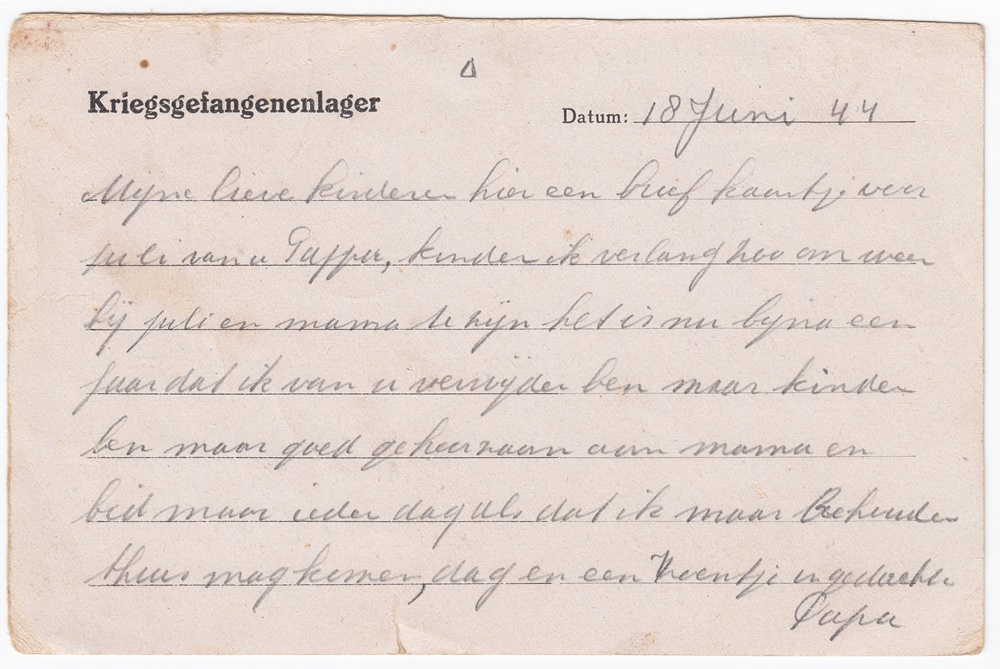 Kriegsgefangenenlager
Datum: 18 Juni 44
Mijne lieve kinderen hier een brief kaartje voor
juli van u Pappa, kinder ik verlang zoo om weer
bij juli en mama te zijn het is nu bijna een
jaar dat ik van u verwijder ben maar kinder
ben maar goed gehoorzaam aan mama en
bid maar ieder dag als dat ik maar Behouden
thuis mag komen, dag en een Zoentje in gedachte
Papa